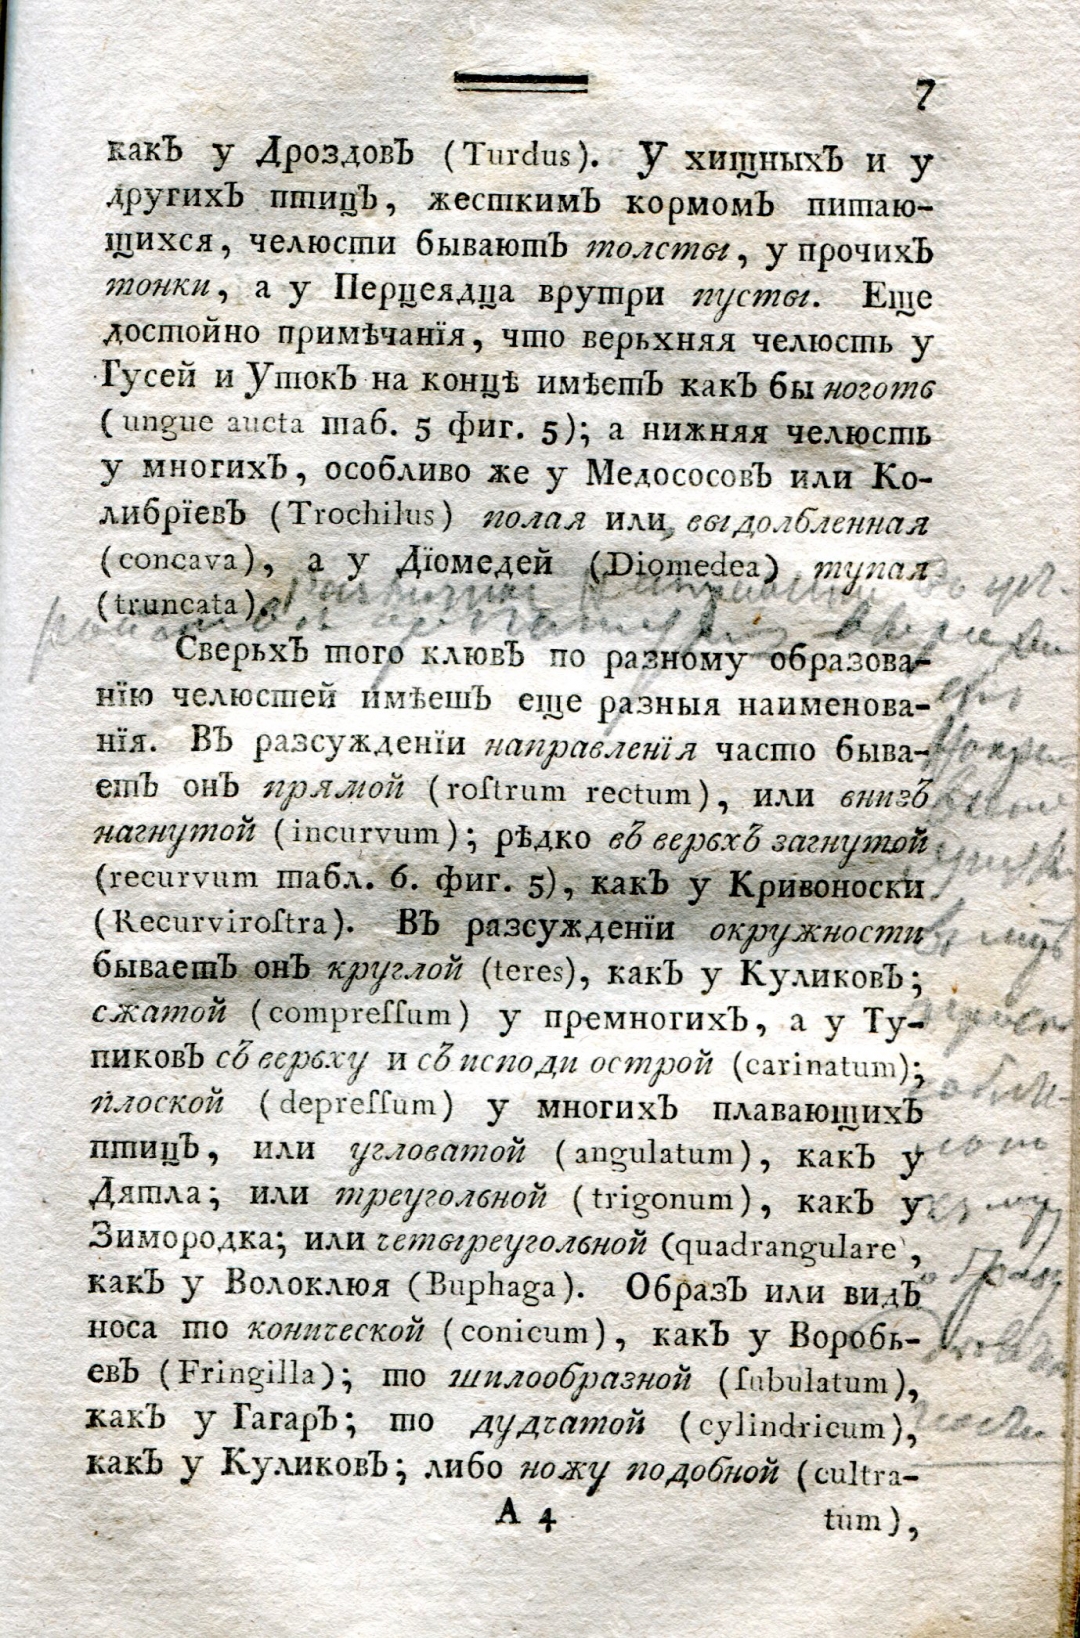 7
какЪ у ДроздовЪ (Turdus). У хищныхЪ и у
другихЪ птицЪ, жесткимЪ кормомЪ питаю-
щихся, челюсти бываютЪ толсты, у прочихЪ
тонки, а у Перцеядца врутри пусты. Еще
достойно примѣчанїя, что верьхняя челюсть у
Гусей и УтокЪ на концѣ имѣетЪ какЪ бы ноготь
(ungue aucta таб. 5 фиг. 5); а нижняя челюсть
у многихЪ, особливо же у МедососовЪ или Ко-
либрїевЪ (Trochilus) полая или выдолбленная
(concava), а у Дїомедей (Diomedea) тупая
(truncata).
СверьхЪ того клювЪ по разному образова-
нїю челюстей имѣешЪ еще разныя наименова-
нїя. ВЪ разсужденїи направленїя часто быва-
етЪ онЪ прямой (roſtrum rectum), или внизЪ
нагнутой (incurvum); рѣдко вЪ верьхЪ загнутой
(recurvum табл. 6. фиг. 5), какЪ у Кривоноски
(Recurviroſtra). ВЪ разсужденїи окружности
бываетЪ онЪ круглой (teres), какЪ у КуликовЪ;
сжатой (compreſſum) у премногихЪ, а у Ту-
пиковЪ сЪ верьху и сЪ исподи острой (carinatum);
плоской (depreſſum) у многихЪ плавающихЪ
птицЪ, или угловатой (angulatum), какЪ у
Дятла; или треугольной (trigonum), какЪ у
Зимородка; или четыреугольной (quadrangulare),
какЪ у Волоклюя (Buphaga). ОбразЪ или видЪ
носа то конической (conicum), какЪ у Воробь-
евЪ (Fringilla); то шилообразной (ſubulatum),
какЪ у ГагарЪ; то дудчатой (cylindricum),
какЪ у КуликовЪ; либо ножу подобной (cultra-
А 4 tum),